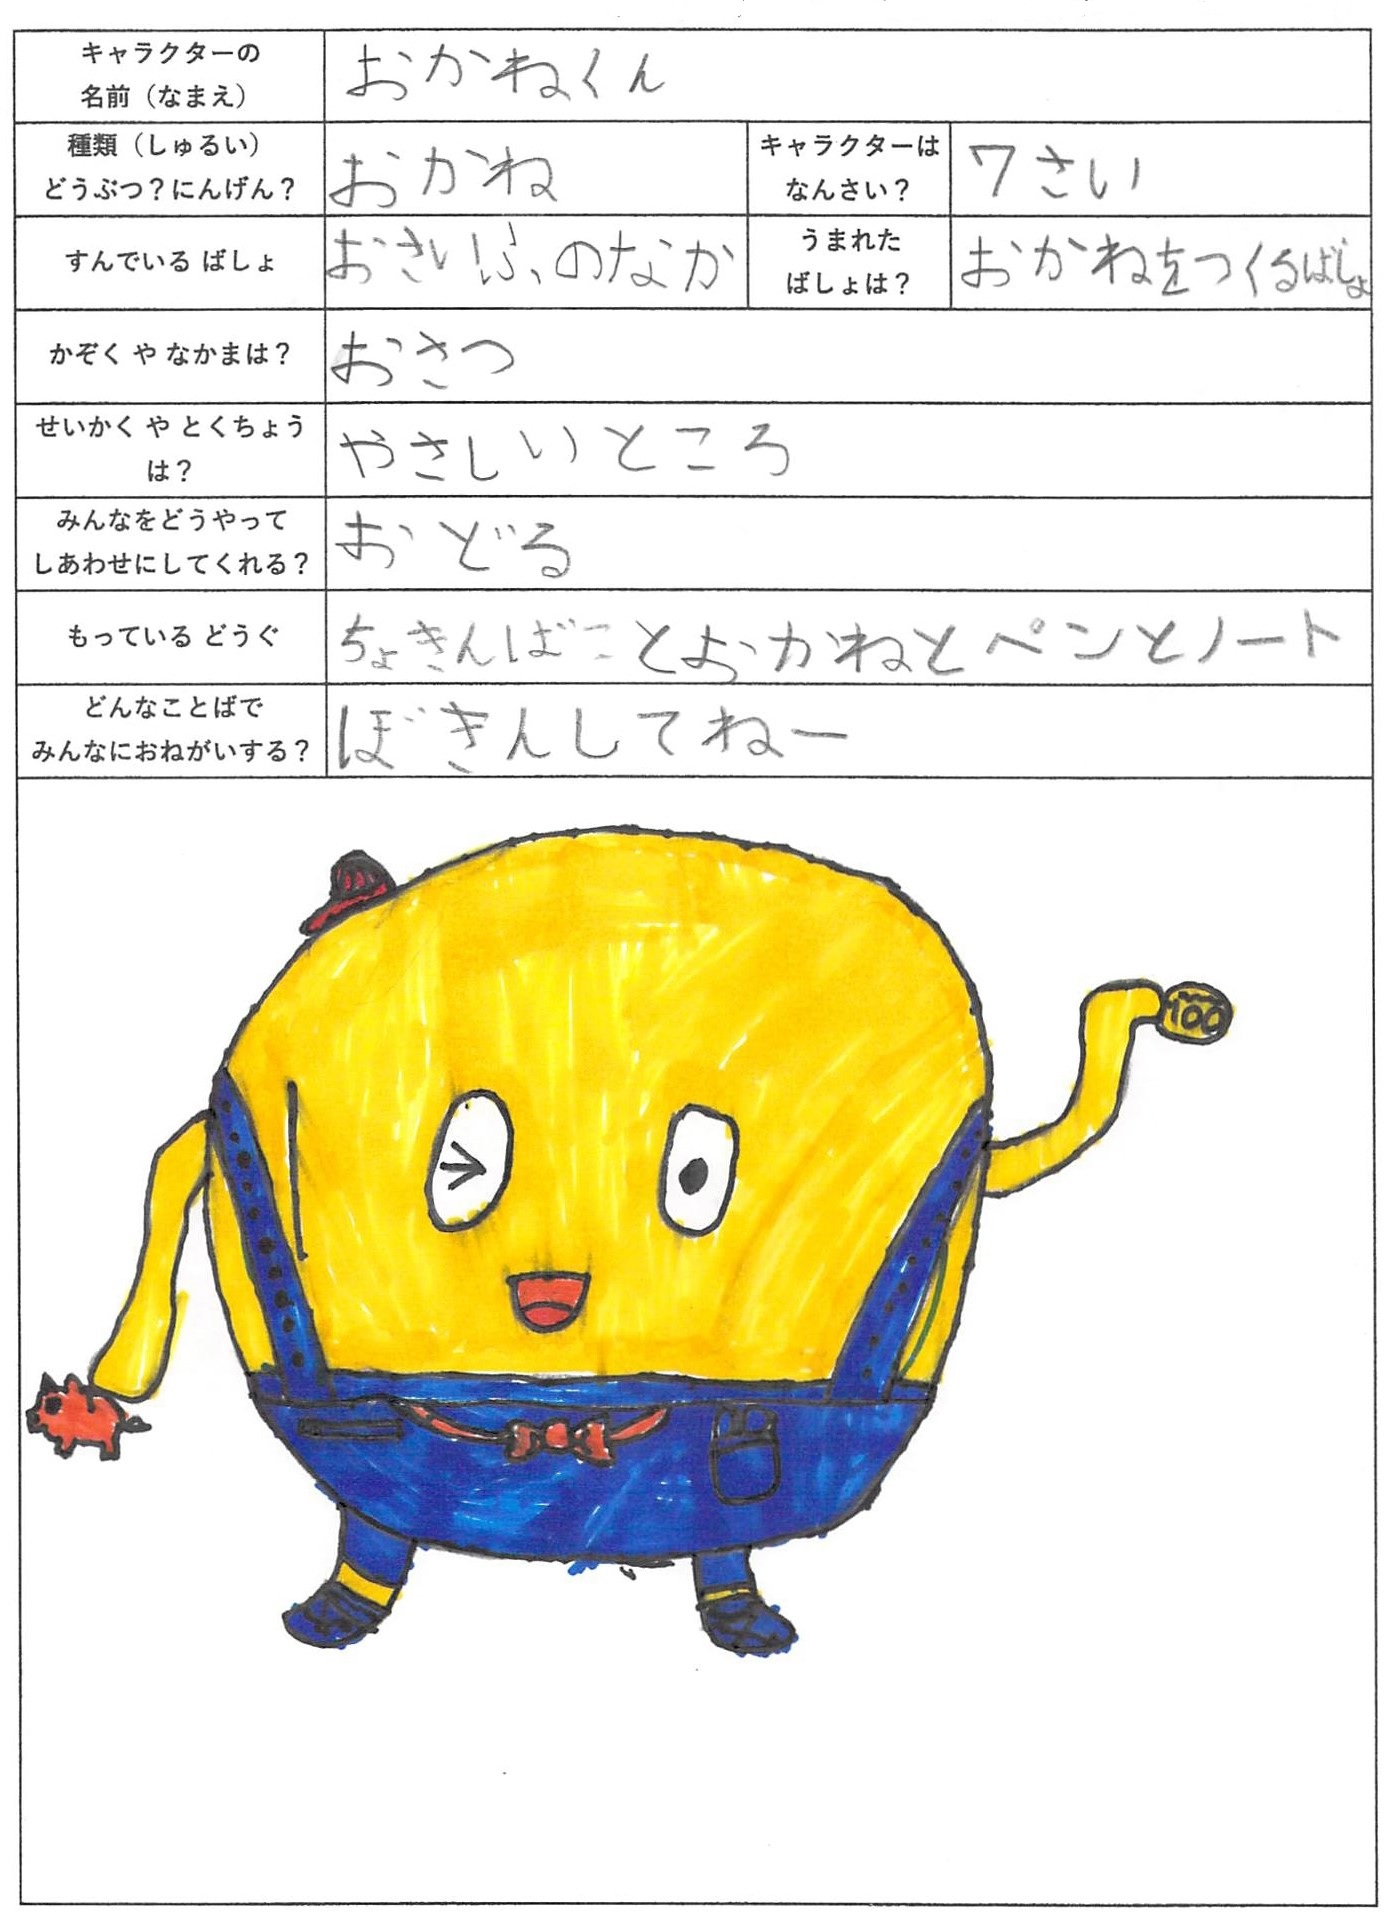 キャラクターの
名前（なまえ）
おかねくん
種類（しゅるい）
どうぶつ？にんげん？
おかね
キャラクターは
なんさい？
7さい
すんでいる ばしょ
おさいふのなか
うまれた
ばしょは？
おかねをつくるばしょ
かぞく や なかまは？
おさつ
せいかく や とくちょう
は？
やさしいところ
みんなをどうやって
しあわせにしてくれる？
おどる
もっている どうぐ
ちょきんばことおかねとペンとノート
どんなことばで
みんなにおねがいする？
ぼきんしてねー
100